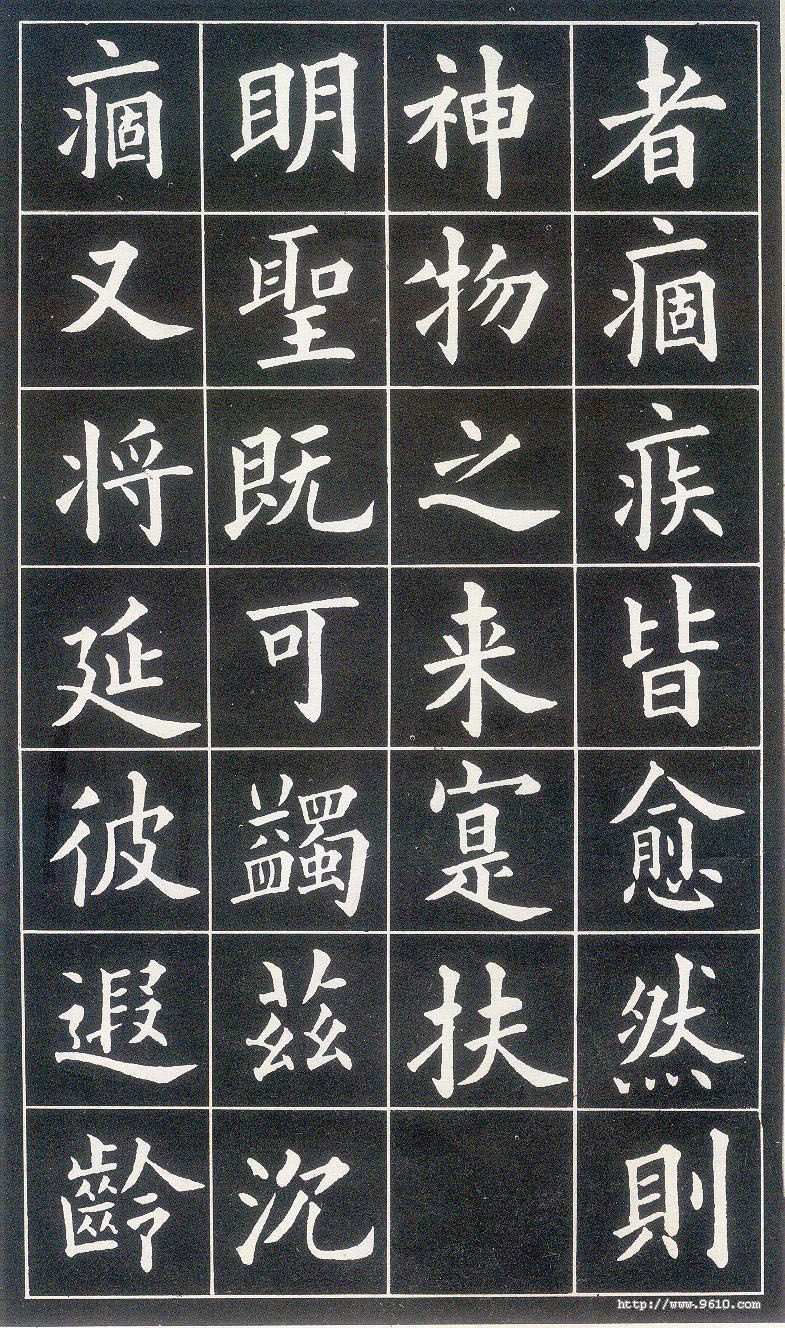 者痼疾皆愈然則
神物之来寔扶
明聖既可蠲茲沉
痼又将延彼遐齡
http://www.9610.com